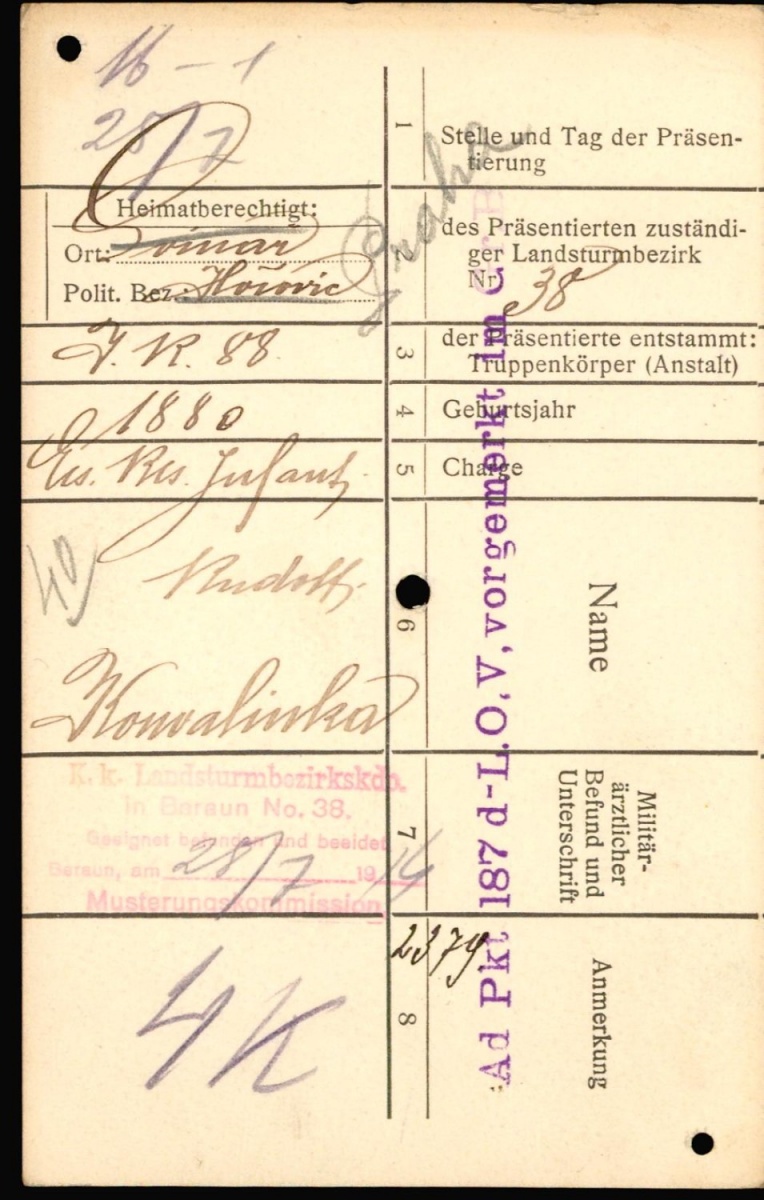 16 – 1
28/7
1
Stelle und Tag der Präsen-
tierung
Heimatberechtigt:
Ort:
Polit. Bez.: Hořovic
Praha
2
des Präsentierten zuständi-
ger Landsturmbezirk
Nr. 38
I. R. 88
3
der Präsentierte entstammt:
Truppenkörper (Anstalt)
1880
4
Geburtsjahr
Ers. Res. Infant.
5
Charge
40
Rudolf
Kouvalinka
6
Name
K. k. Landsturmbezirkskdo.
in Beraun No. 38.
Geeignet befunden und beeidet
Beraun, am 28/7 1914
Musterungskommission
7
Militär-
ärztlicher
Befund und
Unterschrift
4K
2379
8
Anmerkung
Ad Pkt 187 d-L.O.V, vorgemerkt im